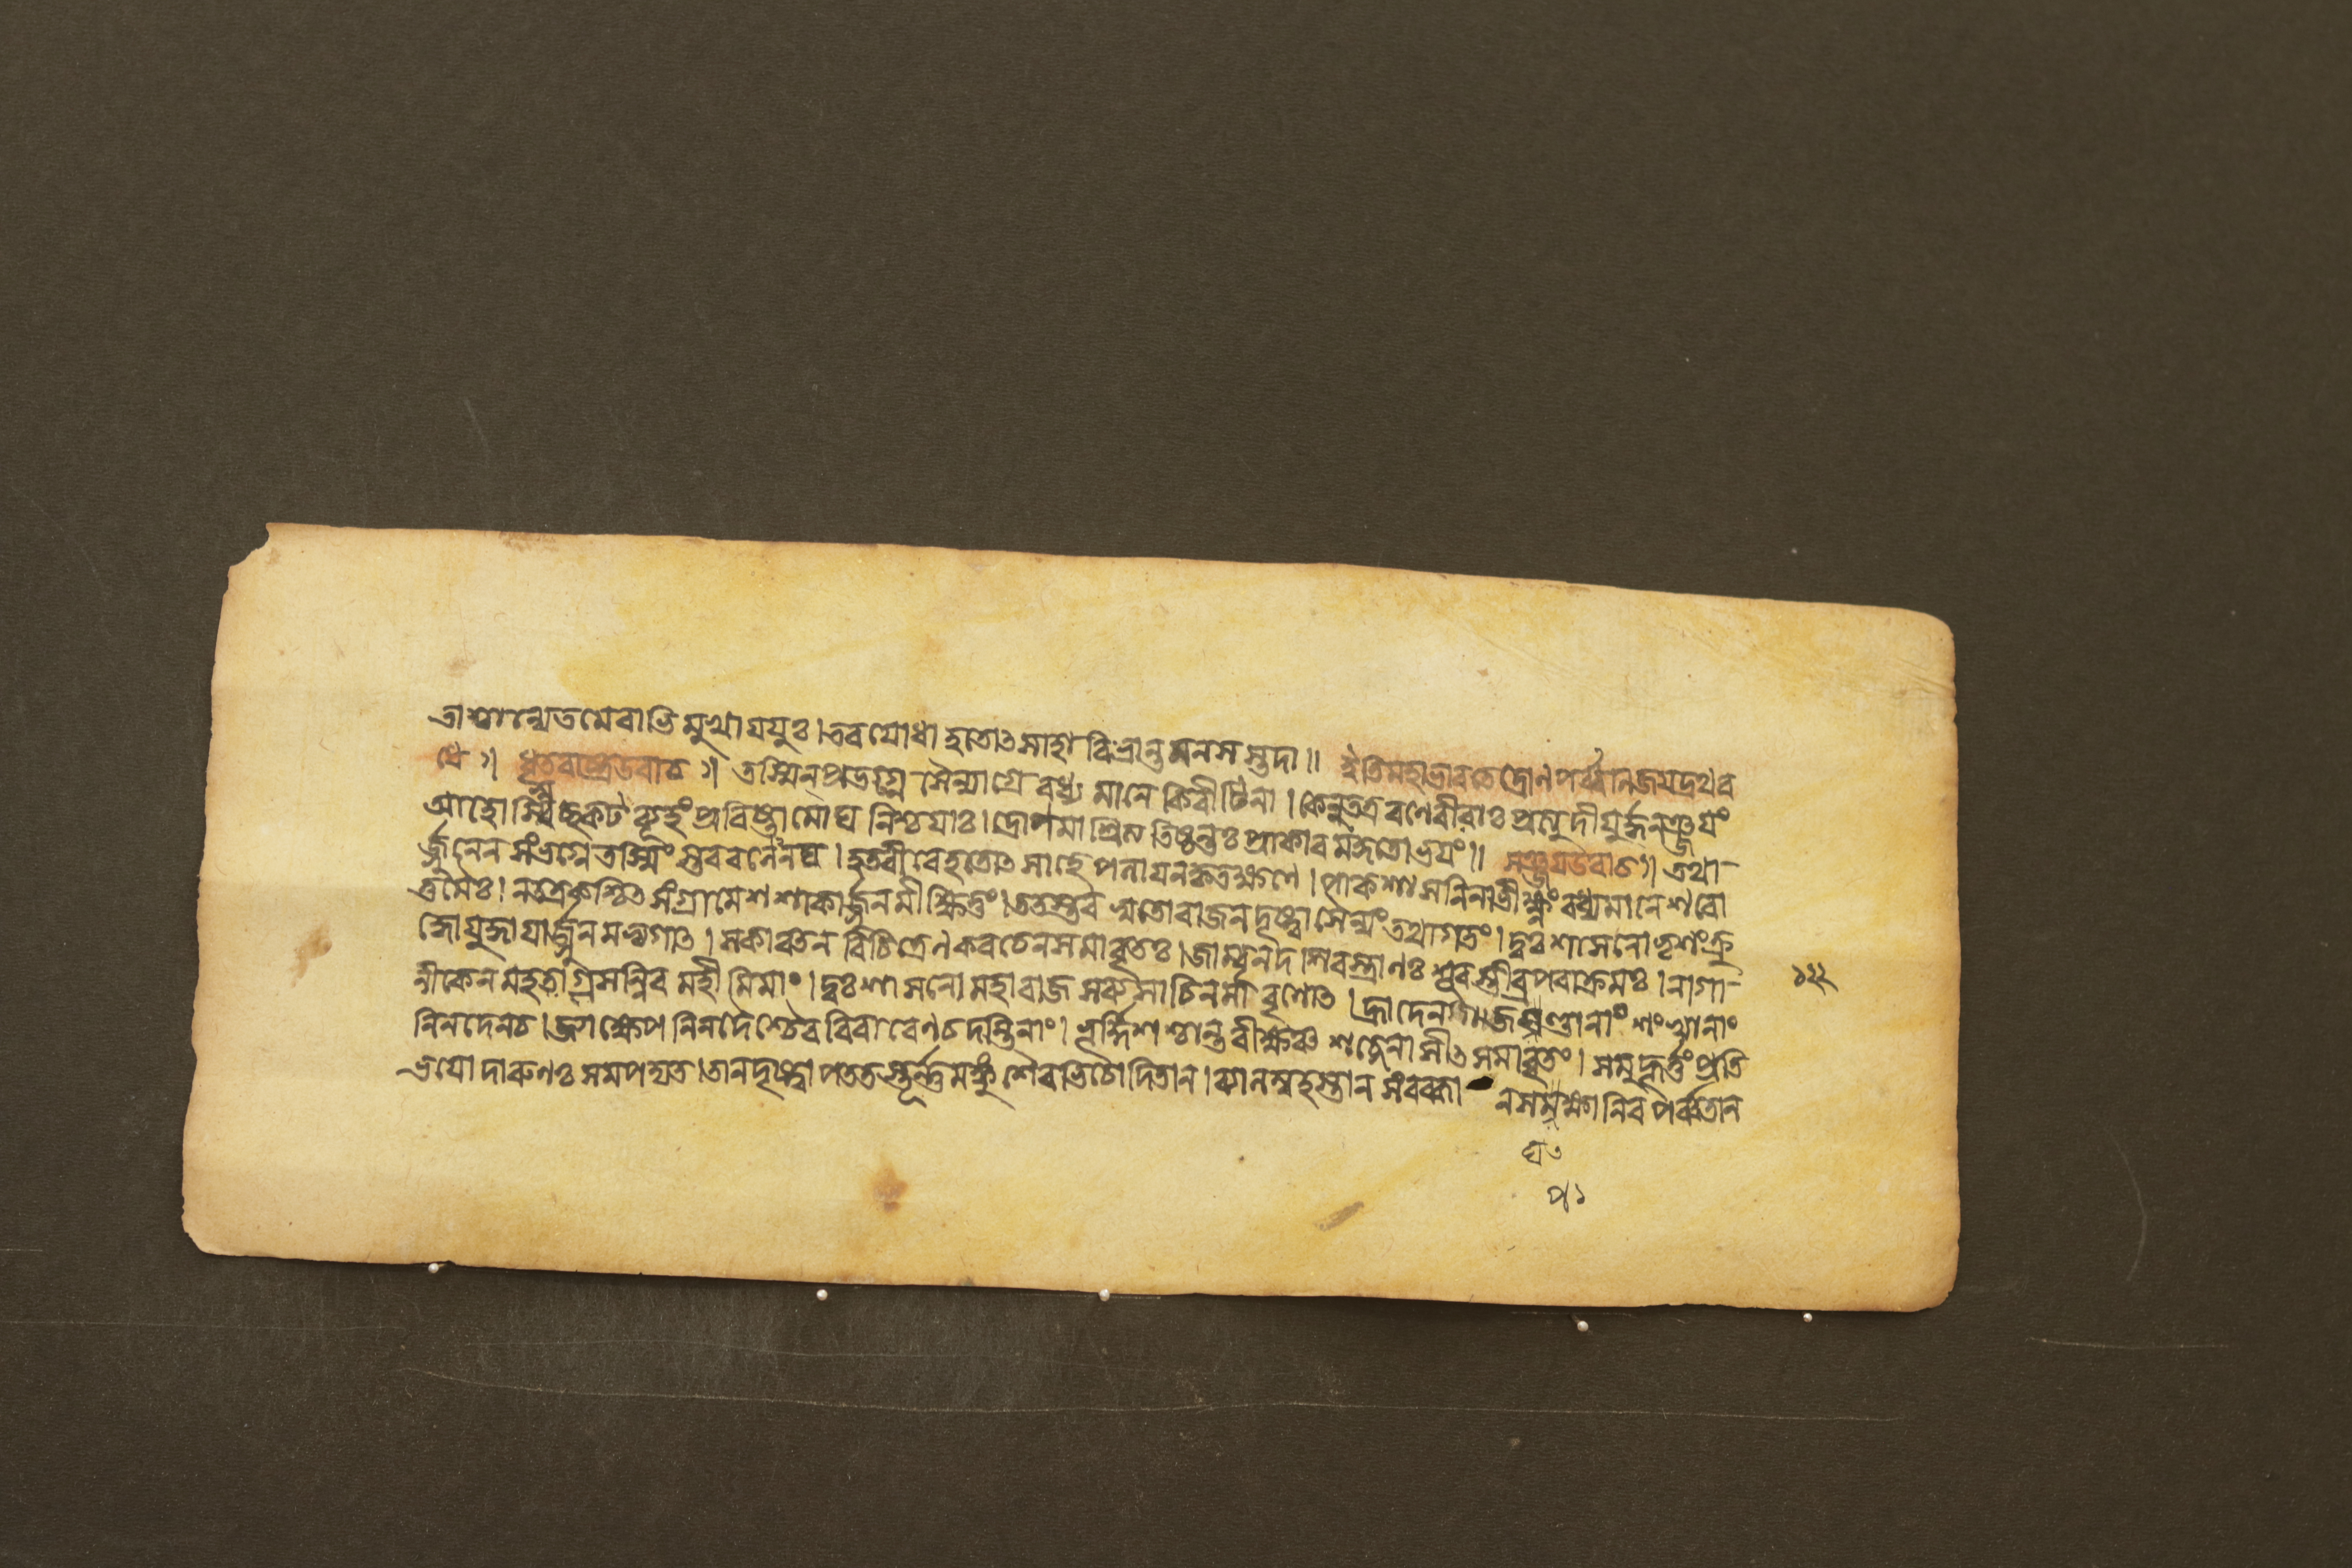 ত্রাশ্চান্যেতমেবাভিমুখাযযুঃ।তবযোধাহতোৎসাহাবিভ্রান্তমনসস্তদা॥ ইতিমহাভারতেদ্রোণপর্ব্বানিজযদ্রথব
ধে॥ ধৃতরাষ্ট্রউবাচ॥ তস্মিন্প্রভগ্নেসৈন্যাগ্রেবধ্যমানেকিরীটিনা।কেনুতত্ররণেবীরাঃপ্রত্যুদীযুর্দ্ধনঞ্জযং
আহোস্বিচ্ছকটব্যূহংপ্রবিষ্টামোঘনিশ্চযাঃ।দ্রোণমাশ্রিত্যতিষ্ঠন্তঃপ্রাকারমকুতোভযং॥ সঞ্জযউবাচ॥ তথা-
র্জ্জুনেনসংভগ্নেতস্মিংস্তববলেনঘ।হতবীরেহতোৎসাহেপলাযনকৃতক্ষণে।পাকশাসনিনাভীক্ষ্ণংবধ্যমানেশরো
ত্তমৈঃ।নতত্রকশ্চিৎসংগ্রামেশশাকার্জ্জুনমীক্ষিতুং।ততস্তবসুতোরাজনদৃষ্ট্বাসৈন্যংতথাগতং।দুঃশাসনোভৃশংক্রু
দ্ধোযুদ্ধাযার্জ্জুনমভ্যগাৎ।সকাঞ্চনবিচিত্রেণকবচেনসমাবৃতঃ।জাম্বূনদশিরস্ত্রাণঃশূরস্তীব্রপরাক্রমঃ।নাগা-
নীকেনমহতাগ্রসন্নিবমহীমিমাং।দুঃশাসনোমহারাজসব্যসাচিনমাবৃণোৎ।হ্রাদেনগজঘণ্টানাংশংখানাং
নিনদেনচ।জ্যাক্ষেপনিনদৈশ্চৈববিরাবেণচদন্তিনাং।ভূর্দ্দিশশ্চান্তরীক্ষঞ্চশব্দেনাসীৎসমাবৃতং।সমুহূর্ত্তংপ্রতি
ভযোদারুণঃসমপদ্যত।তানদৃষ্ট্বাপততস্তূর্ণমঙ্কুশৈরভিচোদিতান।ব্যালম্বহস্তানসংরব্ধা নসপক্ষানিবপর্ব্বতান
১২২